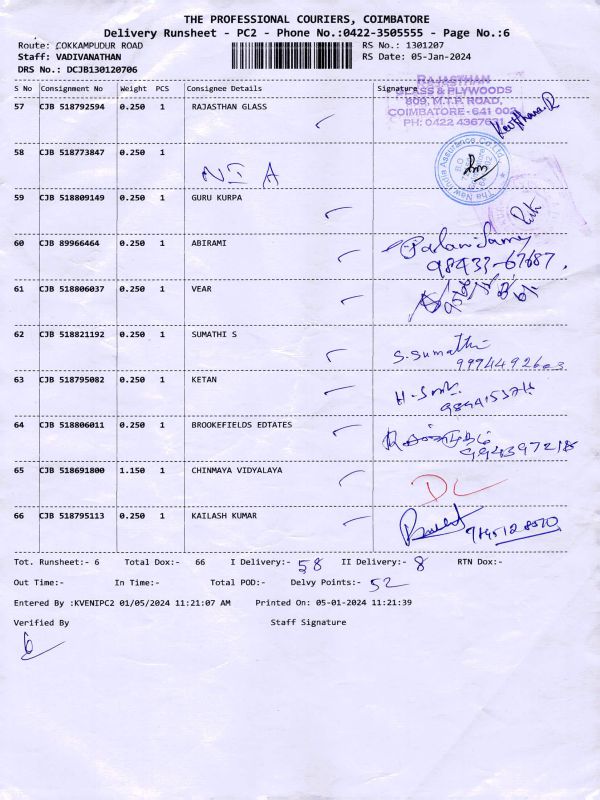 THE PROFESSIONAL COURIERS, COIMBATORE
Delivery Runsheet - PC2 - Phone No.:0422-3505555 - Page No.:6
Route: COKKAMPUDUR ROAD RS No.: 1301207
Staff: VADIVANATHAN RS Date: 05-Jan-2024
DRS No.: DCJB130120706
S No Consignment No Weight PCS Consignee Details Signature
RAJASTHAN
GLASS & PLYWOODS
809, M.T.P. ROAD,
COIMBATORE - 641 002
57 CJB 518792594 0.250 1 RAJASTHAN GLASS
58 CJB 518773847 0.250 1
NIA
The New India Assurance Co Ltd
59 CJB 518809149 0.250 1 GURU KURPA
60 CJB 89966464 0.250 1 ABIRAMI
61 CJB 518806037 0.250 1 VEAR
62 CJB 518821192 0.250 1 SUMATHI S S. Sumathi
63 CJB 518795082 0.250 1 KETAN
64 CJB 518806011 0.250 1 BROOKEFIELDS EDTATES
65 CJB 518691800 1.150 1 CHINMAYA VIDYALAYA DC
66 CJB 518795113 0.250 1 KAILASH KUMAR
Tot. Runsheet:- 6 Total Dox:- 66 I Delivery:- 58 II Delivery:- 8 RTN Dox:-
Out Time:- In Time:- Total POD:- Delvy Points:- 52
Entered By :KVENIPC2 01/05/2024 11:21:07 AM Printed On: 05-01-2024 11:21:39
Verified By Staff Signature